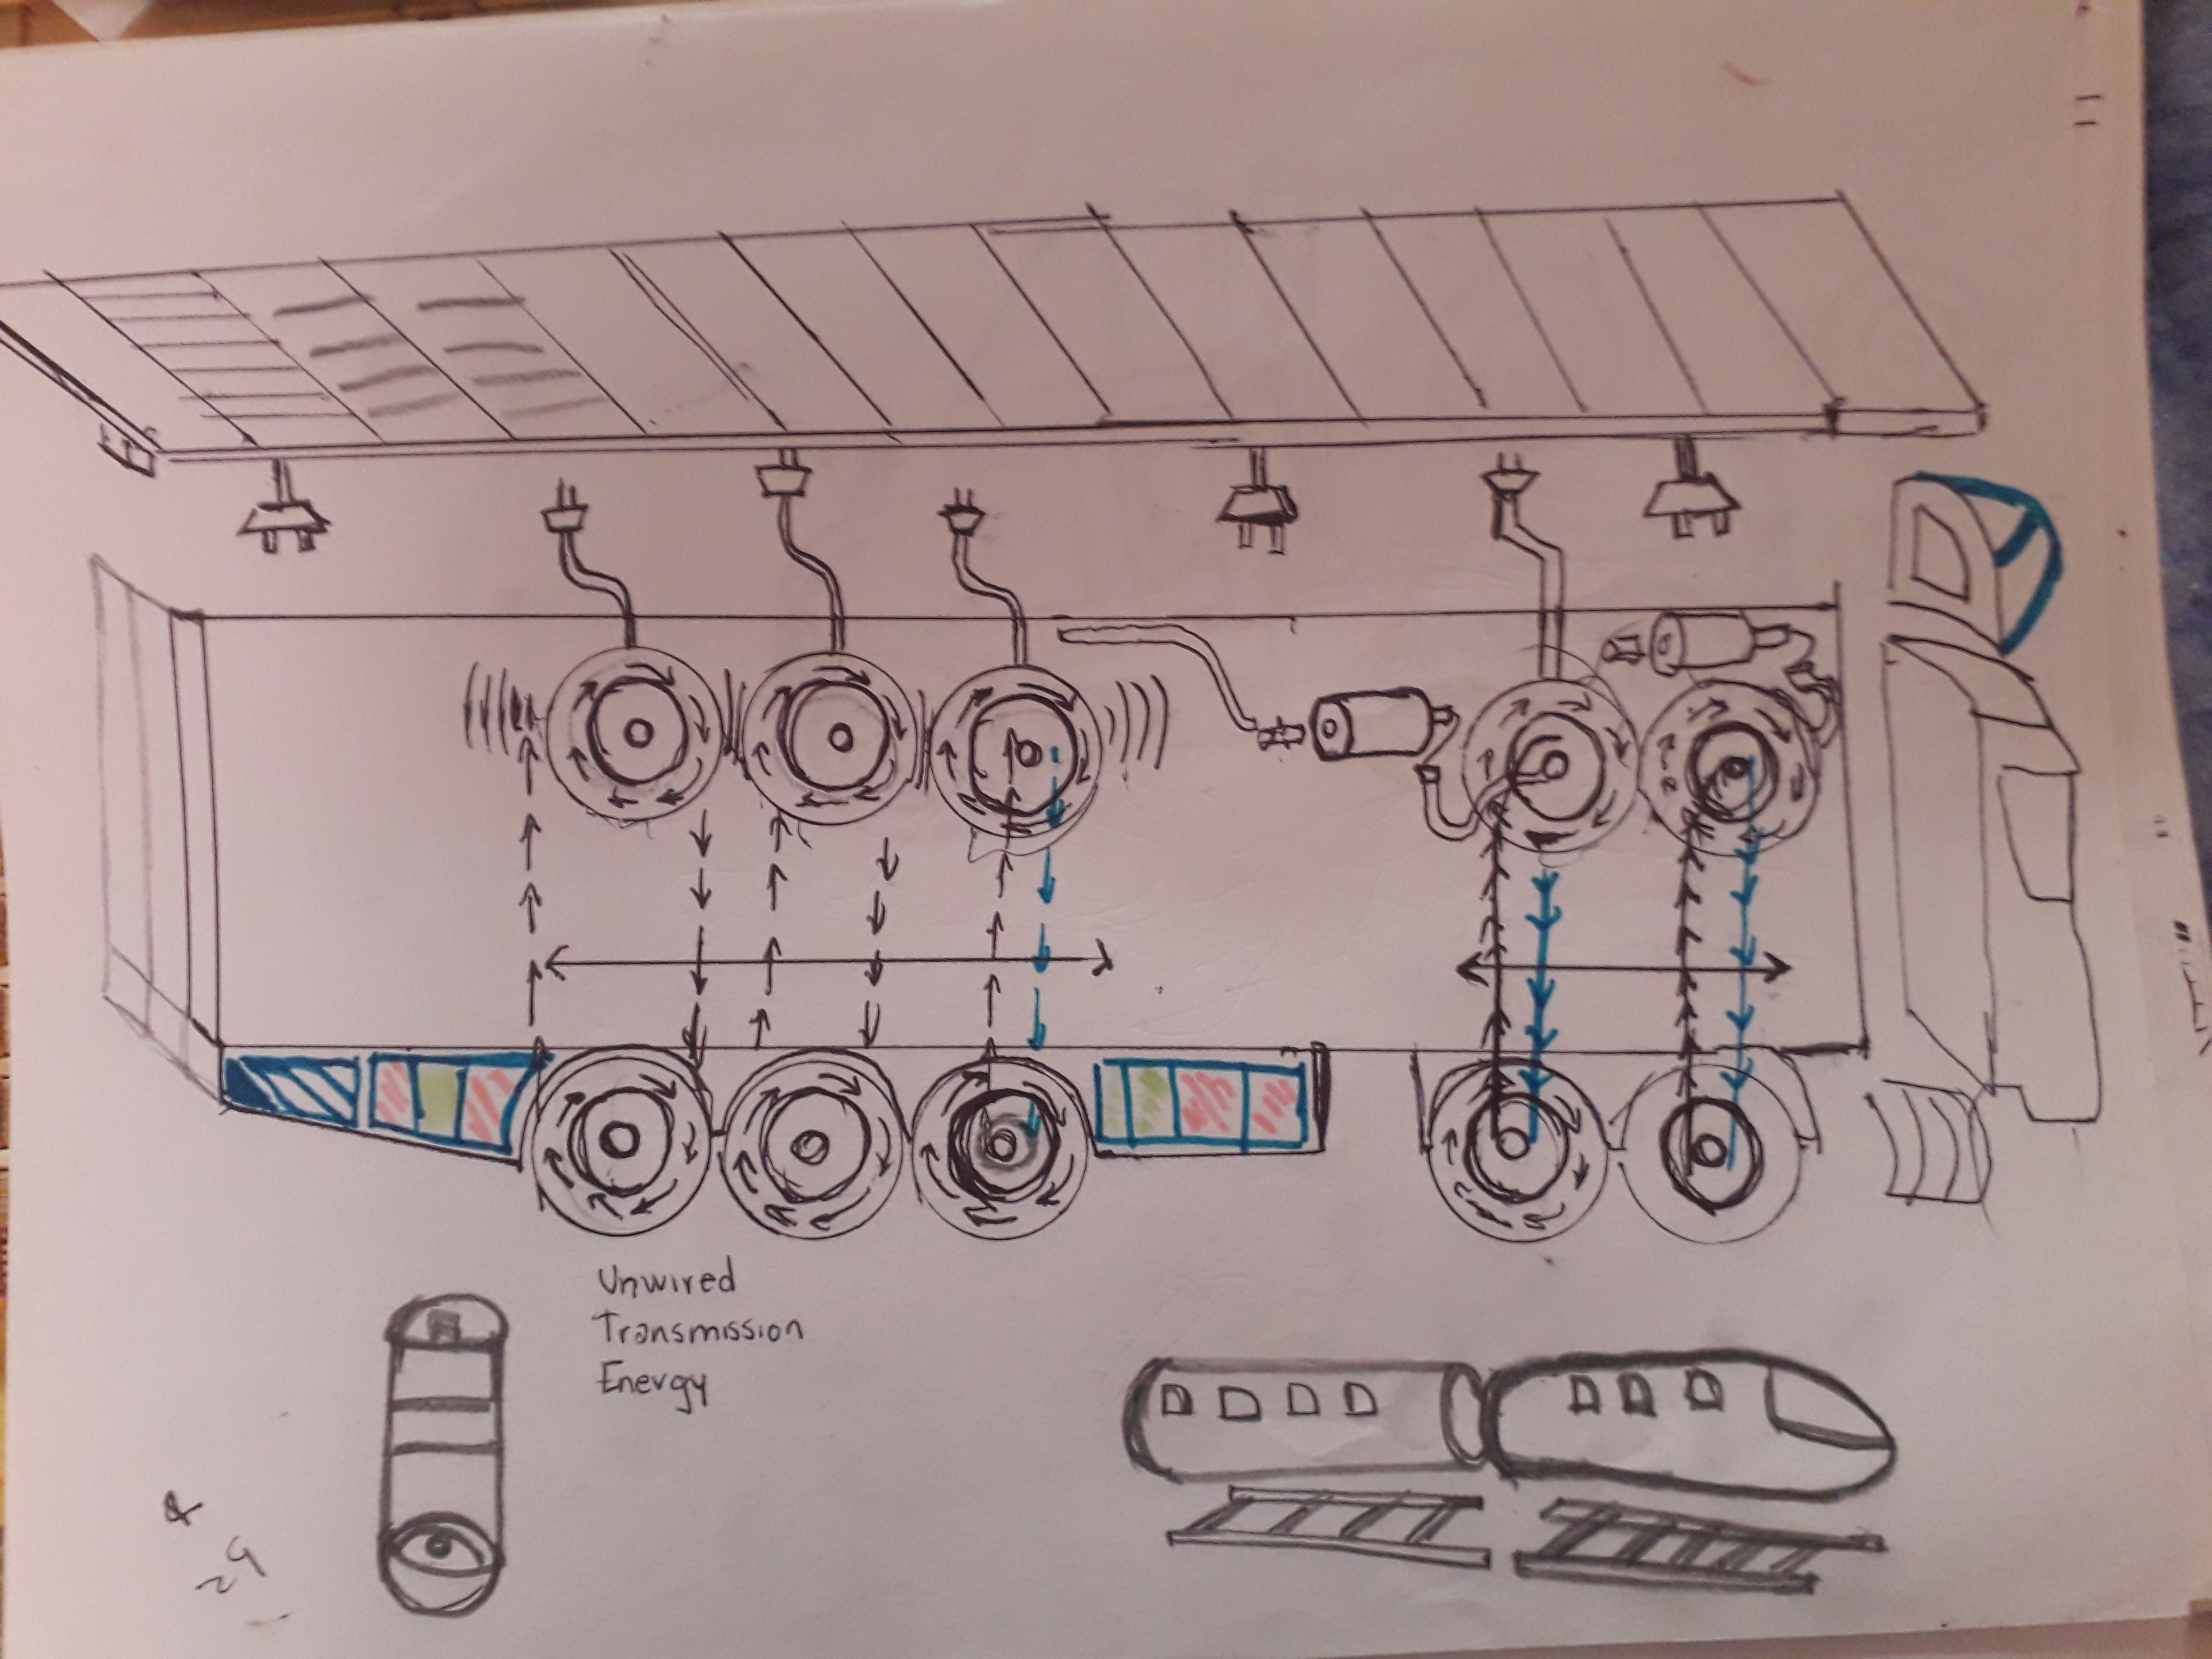 Unwired
Transmission
Energy